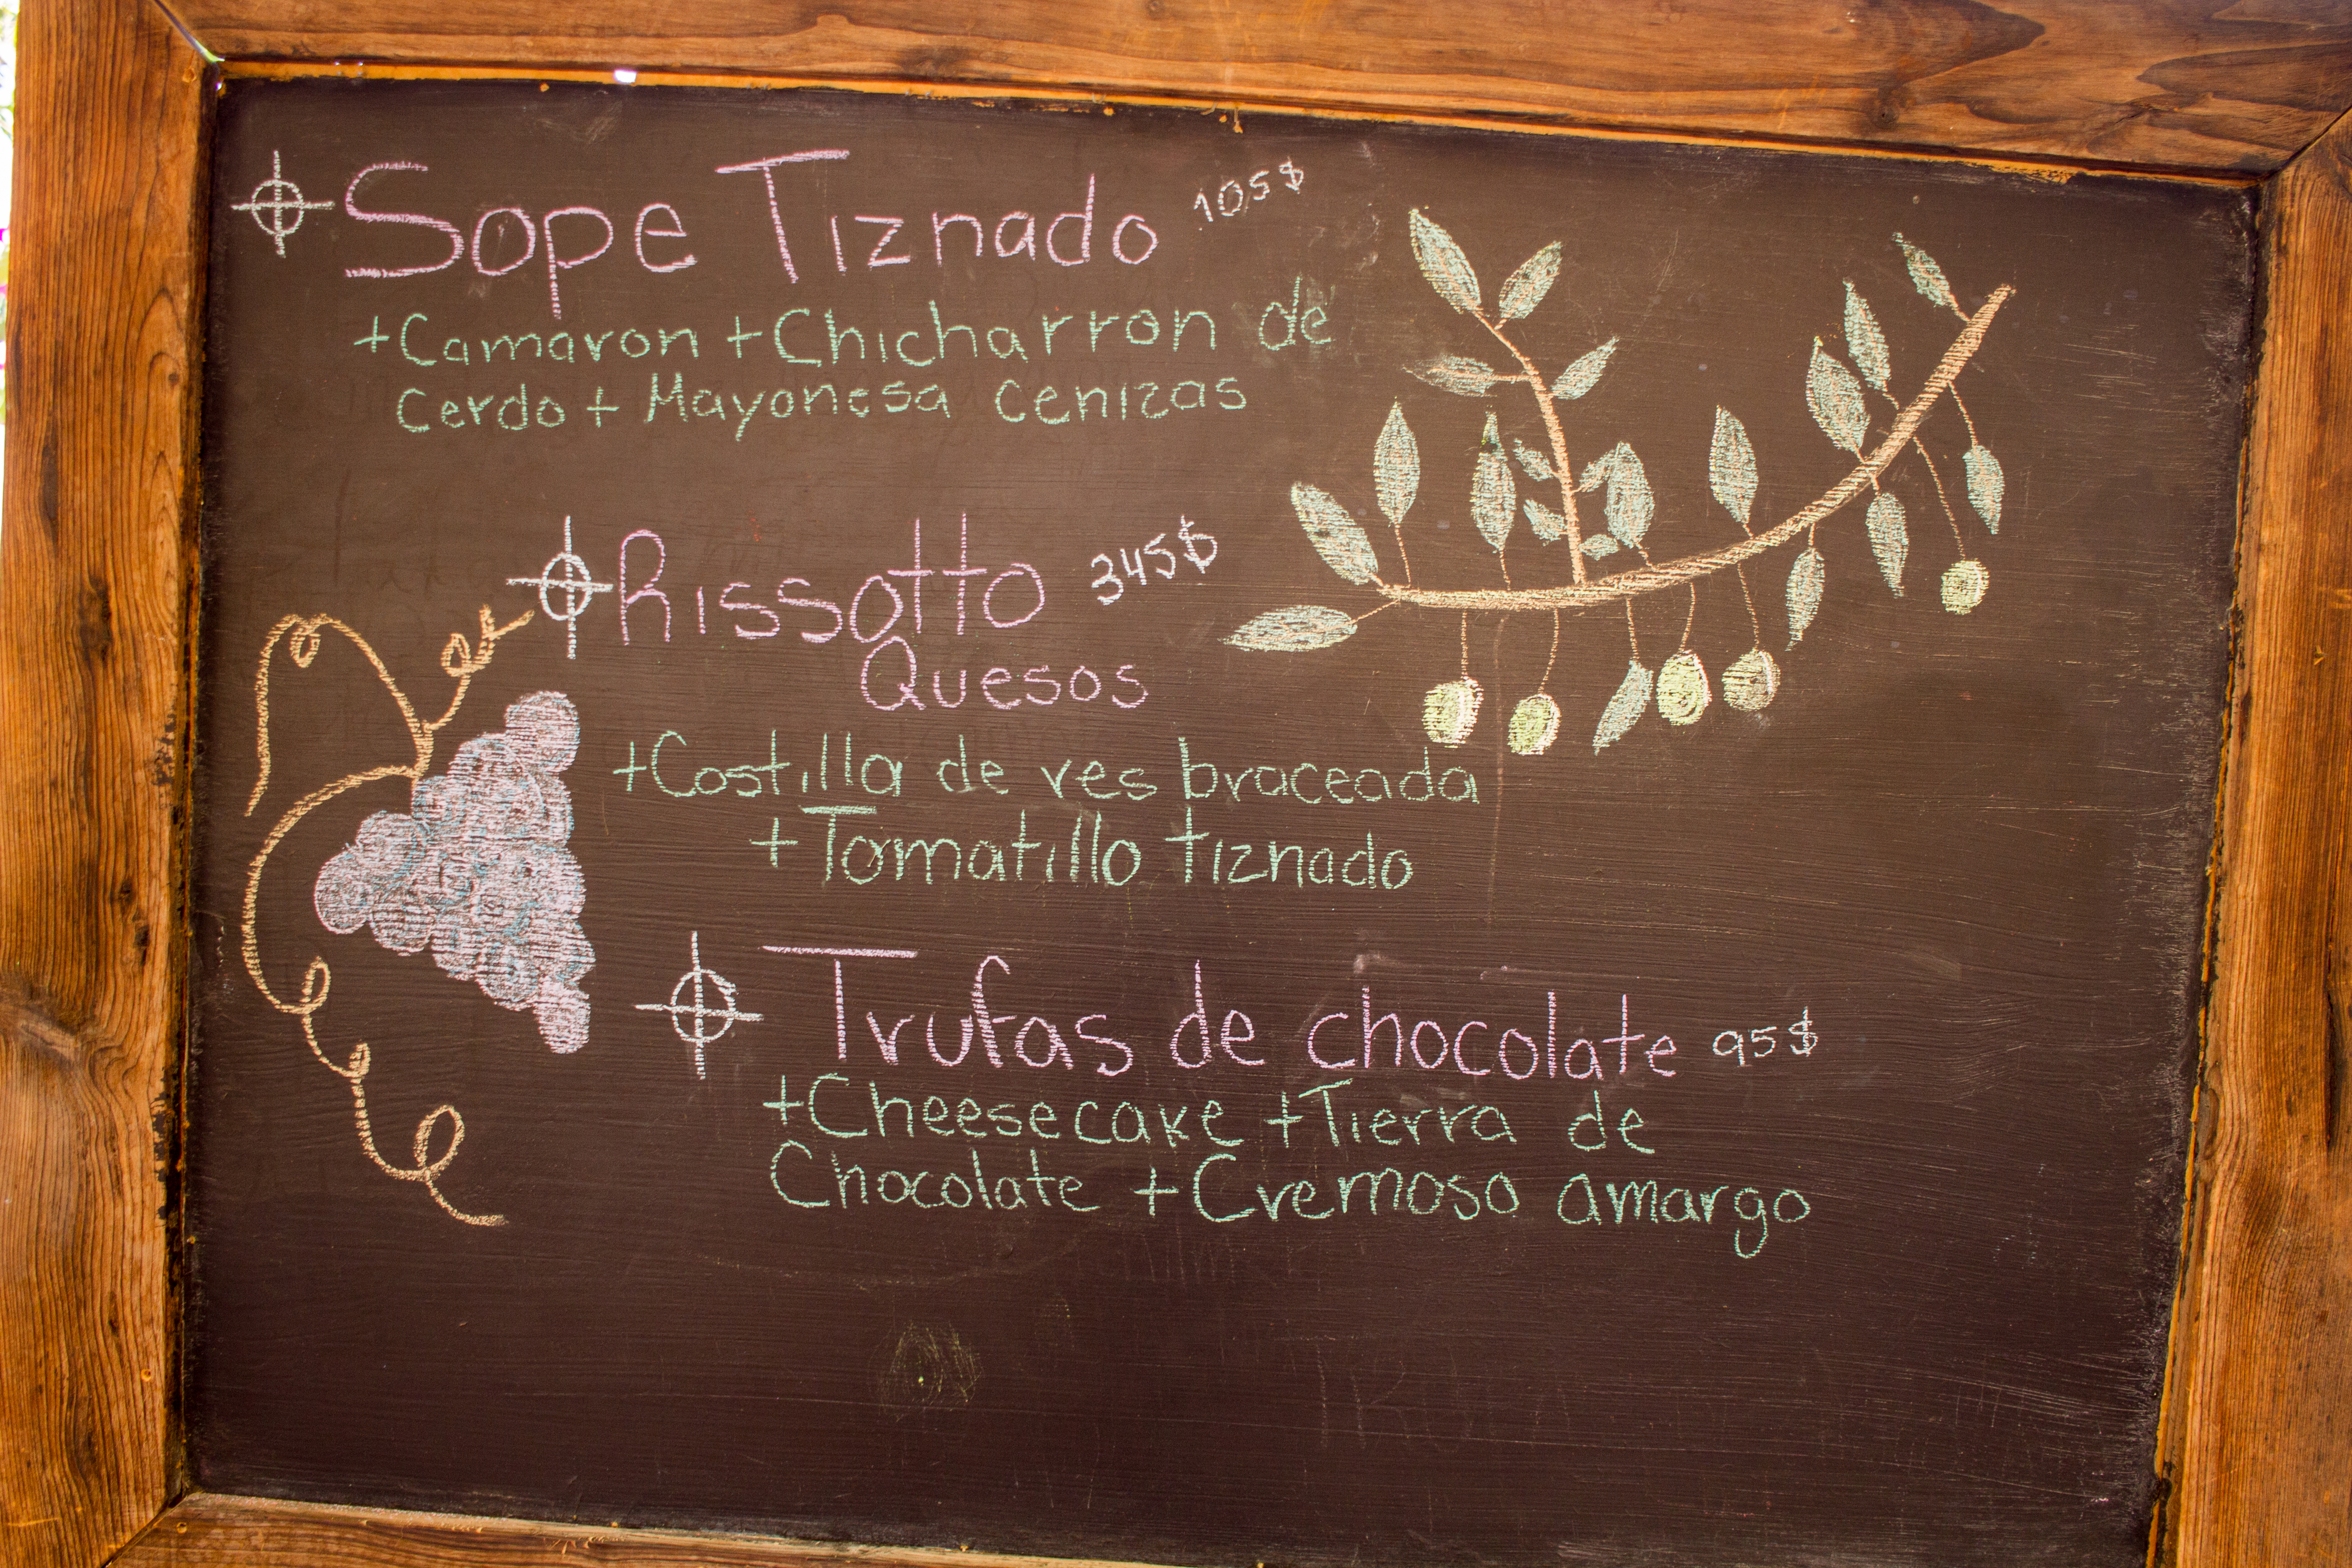 Sope Tiznado 105$
+Camaron +Chicharron de
Cerdo + Mayonesa cenizas
Rissotto 345$
Quesos
+Costilla de res braceada
+Tomatillo tiznado
Trufas de chocolate 95$
+Cheesecake +Tierra de
Chocolate +Cremoso amargo